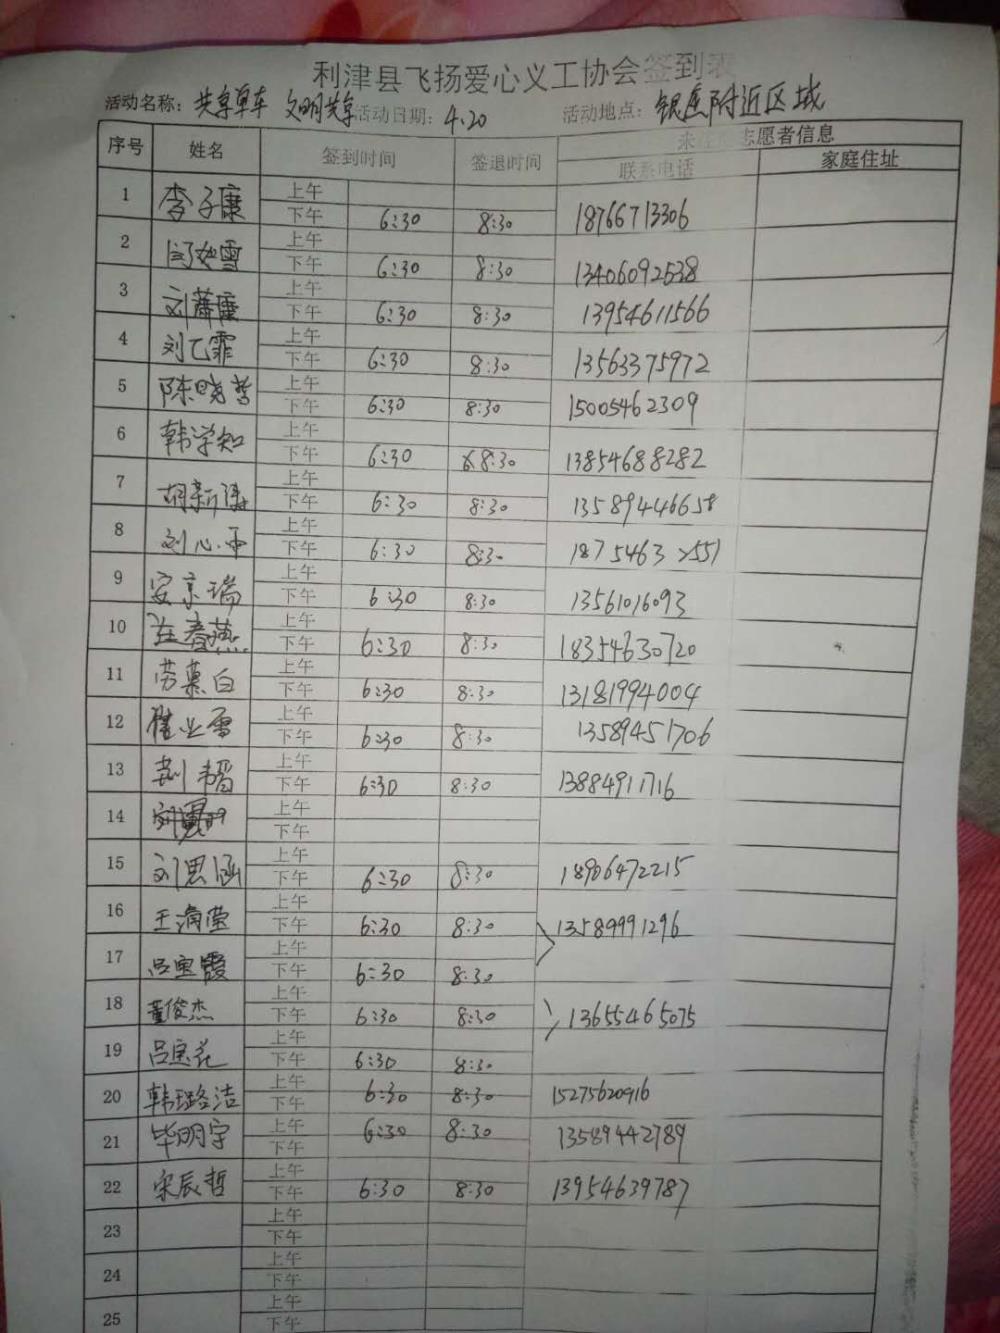 利津县飞扬爱心义工协会签到表
活动名称：共享单车 文明共享 活动日期：4.20 活动地点：银座附近区域
序号 姓名 签到时间 签退时间 志愿者信息
联系电话 家庭住址
1 李子康 上午
下午 6:30 8:30 18766713306
2 闫如雪 上午
下午 6:30 8:30 13406092538
3 刘 上午
下午 6:30 8:30 13954611566
4 刘乙霏 上午
下午 6:30 8:30 13563375972
5 陈晓哲 上午
下午 6:30 8:30 15005462309
6 韩学知 上午
下午 6:30 8:30 13854688282
7 胡新 上午
下午 6:30 8:30 13589446658
8 刘心雨 上午
下午 6:30 8:30 18754632551
9 安京瑞 上午
下午 6:30 8:30 13561016093
10 春燕 上午
下午 6:30 8:30 18354630720
11 劳慕白 上午
下午 6:30 8:30 13181994004
12 崔业雷 上午
下午 6:30 8:30 13589451706
13 荆 上午
下午 6:30 8:30 13884911716
14 上午
下午
15 刘思涵 上午
下午 6:30 8:30 18906472215
16 王滿莹 上午
下午 6:30 8:30 13589991296
17 吕宝霞 上午
下午 6:30 8:30
18 董俊杰 上午
下午 6:30 8:30 13655465075
19 吕宝花 上午
下午 6:30 8:30
20 韩璐洁 上午 6:30 8:30 15275620916
下午
21 毕明宇 上午 6:30 8:30 13589442789
下午
22 宋辰哲 上午
下午 6:30 8:30 13954639787
23 上午
下午
24 上午
下午
25 上午
下午